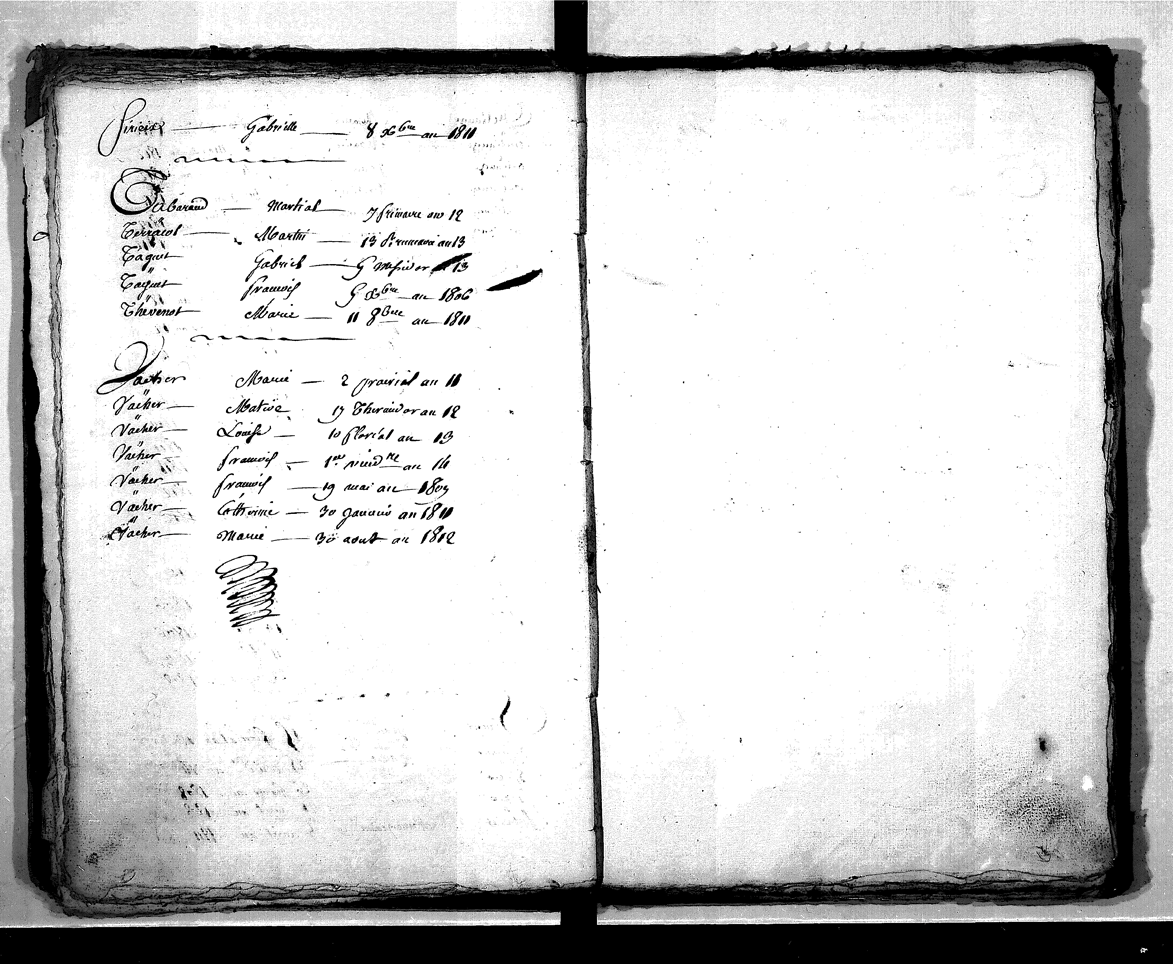 Sirieix — Gabrielle — 8 Xbre an 1811
Tabaraud — Martial — 7 frimaire an 12
Terracol — Martin — 13 Brumaire an 13
Taquet Gabriel — 9 Messidor an 13
Taquet francois 9 Xbre an 1806
Thevenot Marie — 11 8bre an 1811
Vacher Marie — 2 prairial an 11
Vacher — Mative 17 Thermidor an 12
Vacher — Louise — 10 floréal an 13
Vacher francois — 1er vend re an 14
Vacher — francois — 19 mai an 1809
Vacher — Catherine — 30 janvier an 1811
Vacher — Marie — 30 aout an 1812